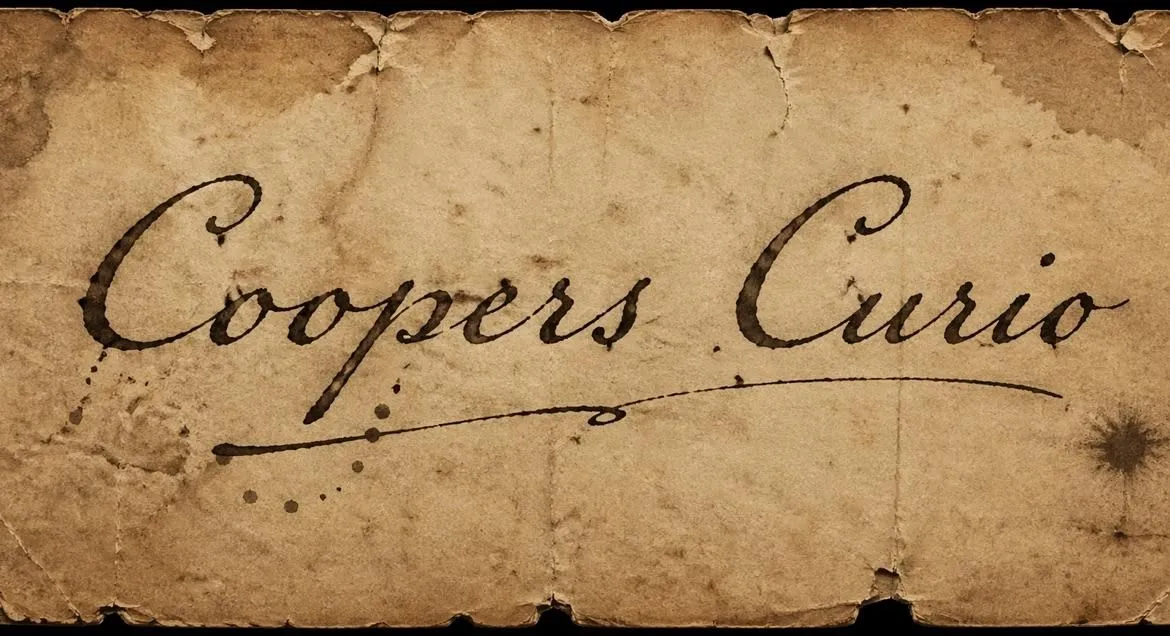 Coopers Curio